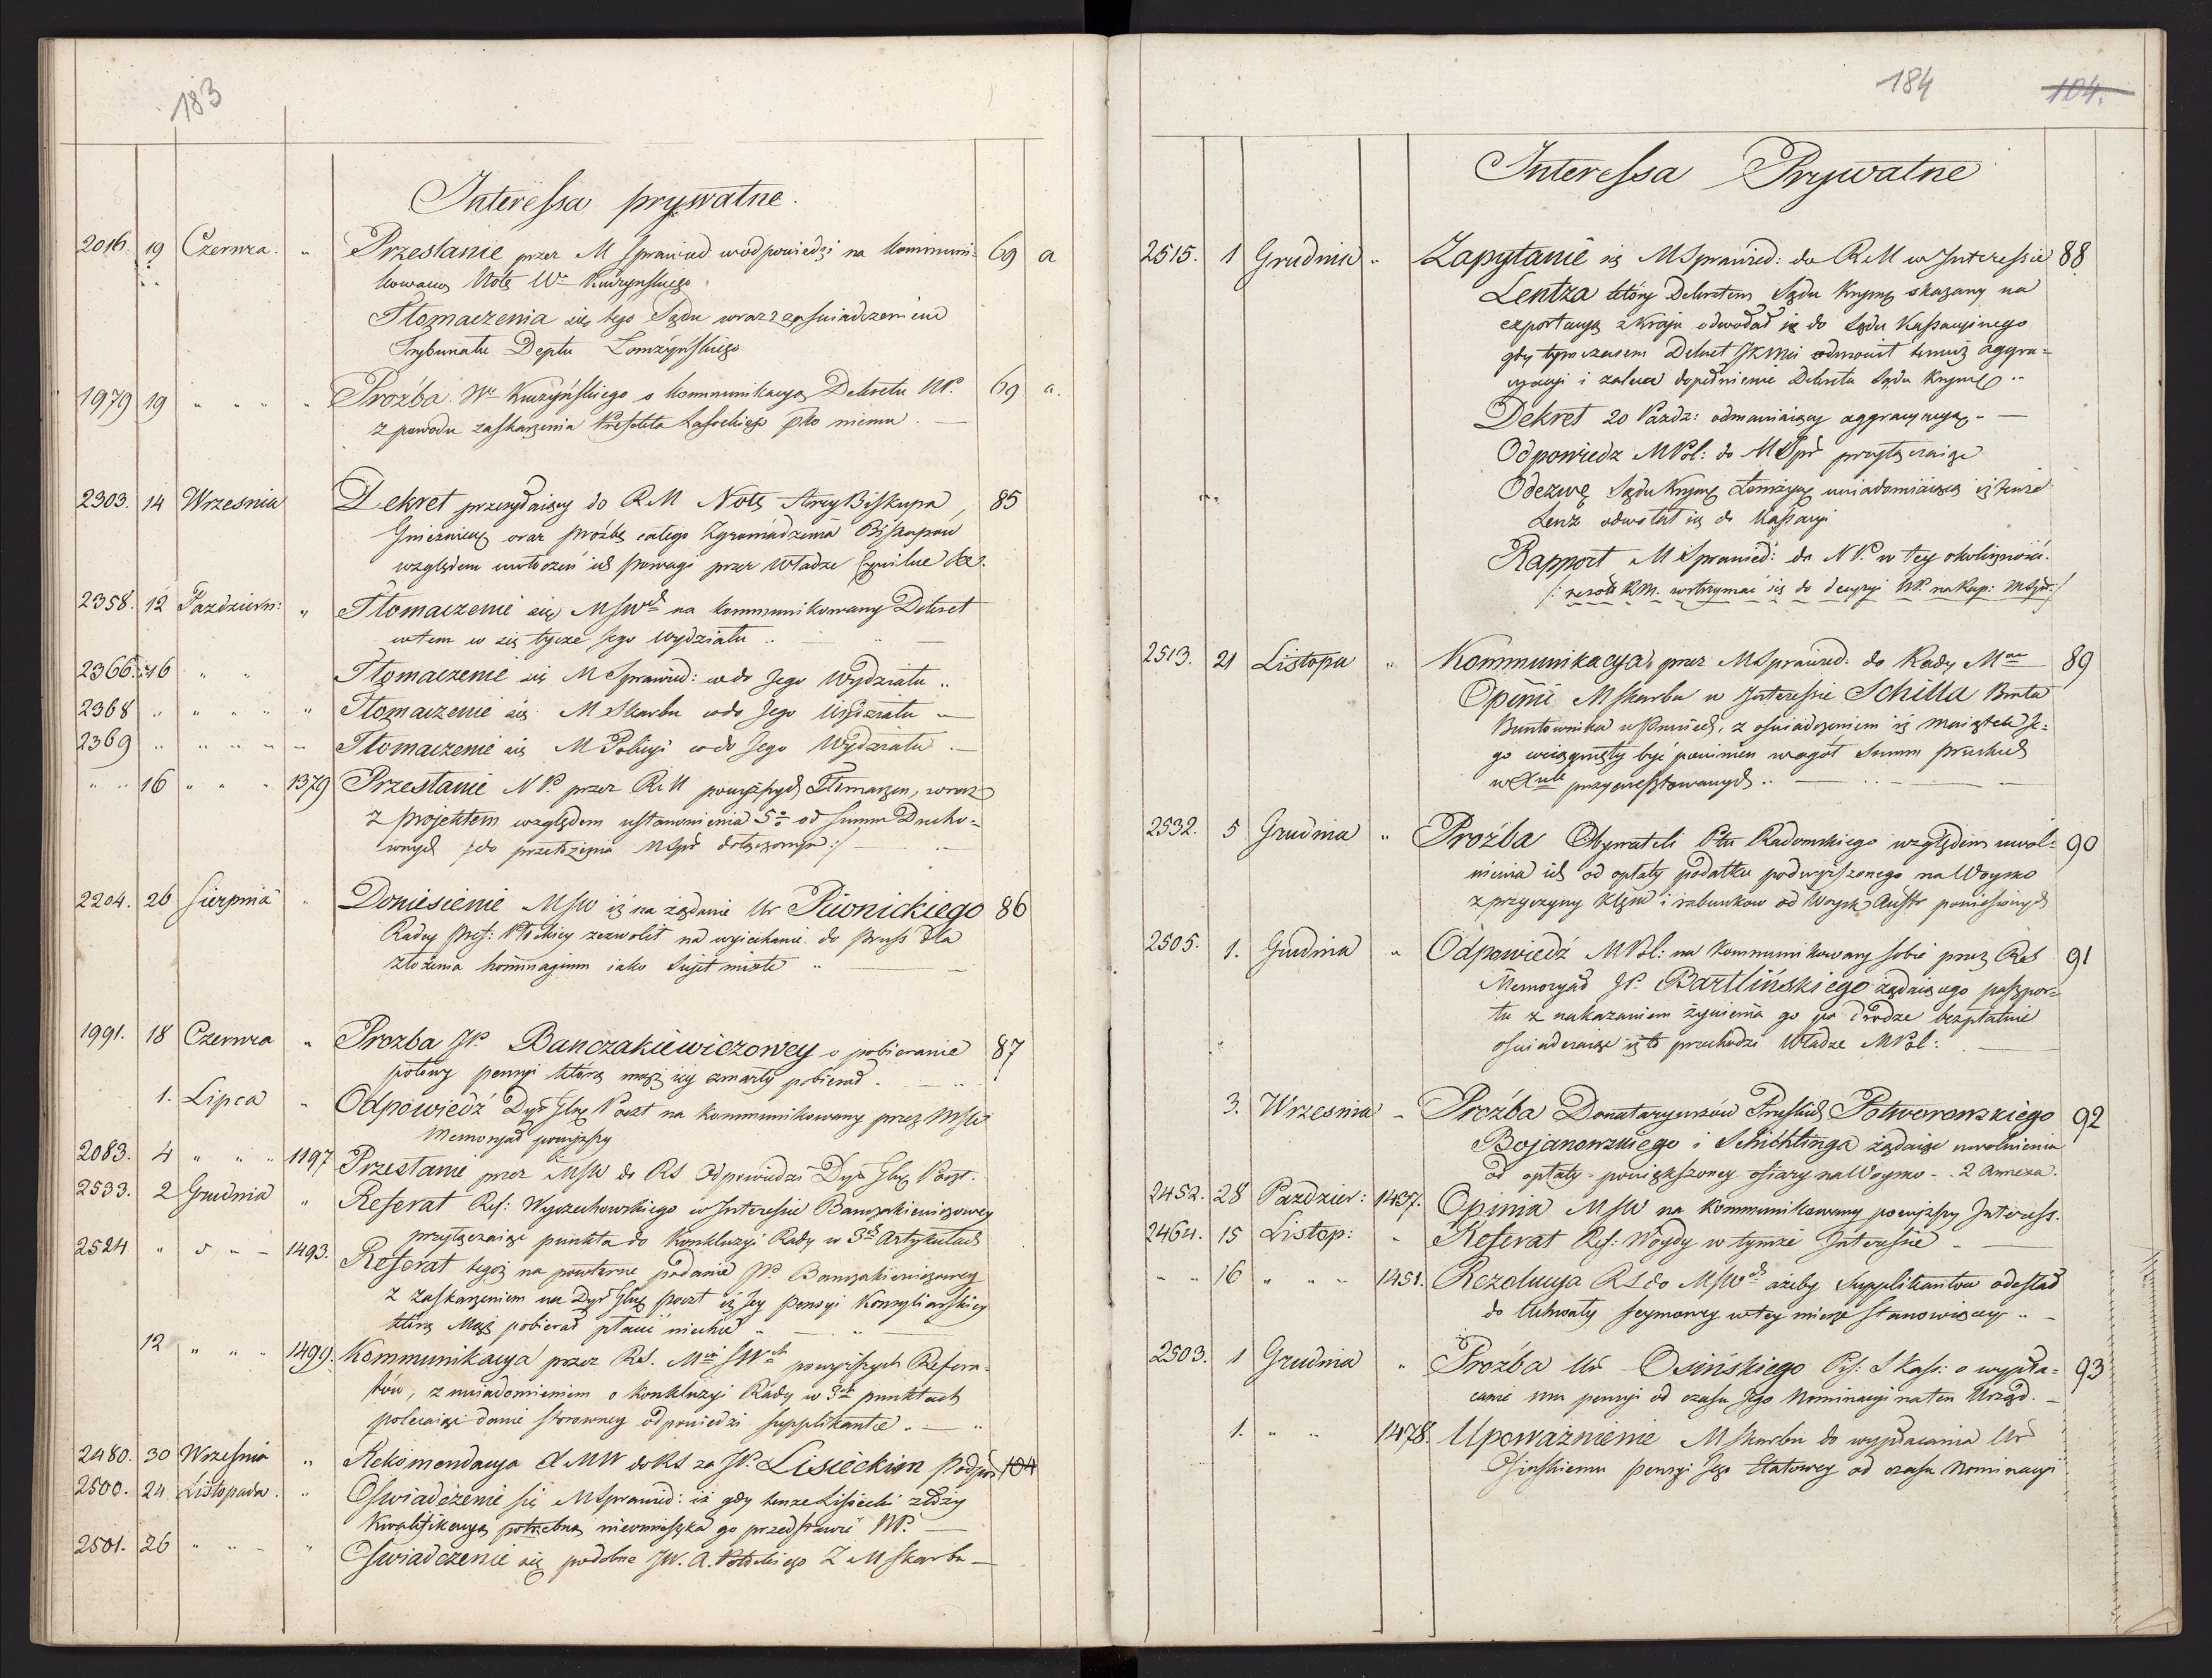 183
Interessa prywatne.
2016. 19 Czerwca. " Przesłanie przez M Sprawied. wodpowiedzi na kommuni- 69 a
kowaną Notę Wo Kuczynskiego
Tłomaczenia się tego Sądu wraz z zaswiadczeniem
Trybunału Deptu Łomżyńskiego
1979 19 " " " " Prozba Wo Kuczyńskiego o kommunikacyą Dekretu NP. 69 a.
z powodu zaskarzenia Prefekta Lasockiego pko niemu. —
2303. 14 Wrzesnia Dekret przesyłaiący do RM Notę ArcyBiskupa 85
Gnieznieng oraz prozbę całego Zgromadzenia Biskupów
względem uwłoczeń ich powagi przez Władze Cywilne &c.
2358. 12 Pazdziern: " Tłomaczenie się MSWch na kommunikowany Dekret
wtem w się tycze Jego Wydziału ..
2366. 16 " " Tłomaczenie się M Sprawied: wdo Jego Wydziału ..
2368 " " " " " Tłomaczenie się M Skarbu codo Jego Wydziału —
2369 " " " " — Tłomaczenie się M Policyi codo Jego Wydziału —
" " 16 " " " 1379 Przesłanie NP. przez RM powyższych Tłomaczen, wraz
z projektem względem ustanowienia 5% od Summ Ducho=
wnych /:do przełozenia MSpr dołączonym:/ —
2204. 26 Sierpnia " Doniesienie MSW iż na żądanie Ur Piwnickiego 86
Radcy Pref: Płockiey zezwolił na wyiechanie do Pruss dla
złożenia hommagium iako Sujet mixte " —
1991. 18 Czerwca " Prozba JP. Banczakiewiczowey o pobieranie 87
połowy pensyi którą mąż iey zmarły pobierał.
1. Lipca " Odpowiedź Dyr Glney Poczt na kommunikowany przez MSW
Memoryał powyższy
2083. 4 " " " 1197 Przesłanie przez MSW do RS Odpowiedzi Dyr Glney Poczt.
2533. 2 Grudnia " Referat Ref: Wyczechowskiego w Interesie Banczakiewiczowey
przyłączaiąc punkta do Konkluzyi Rady w 3ch Artykułach
2524 " 5 " — 1493. Referat tegoż na powtórne podanie JP. Banczakiewiczowey
z zaskarzeniem na Dyr Glną poczt iż Jey pensyi Konsyliarskiey
którą Mąż pobierał płacić niechce "
12 " " " 1499. Kommunikacya przez RS. Mwi SWch powyższych Refera-
tów, z uwiadomieniem o konkluzyi Rady w 3ch punktach
polecaiąc danie stosowney odpowiedzi supplikantce. —
2480. 30 Wrzesnia " Rekomendacya d MW doRS za JP. Lisieckim Podpis 104
2500. 24 Listopada. " Oswiadczenie się MSprawied: iż gdy tenze Lisiecki złoży
kwalifikacyą potrzebną nieomieszka go przedstawić NP. —
2501. 26 " " — " Oswiadczenie się podobne JW. A. Potockiego Z M Skarbu —
184
104.
Interessa Prywatne
2515. 1 Grudnia " Zapytanie się MSprawied: do RM w Interessie 88
Lentza który Dekretem Sądu Krymg skazany na
exportacyą z Kraju odwołał się do Sądu Kassacyinego
gdy tymczasem Dekret JKMci odmówił temuż aggra=
cyacyi i zaleca dopełnienie Dekretu Sądu Krymg ..
Dekret 20 Pazdz: odmawiaiący aggracyacyą. —
Odpowiedz MPol: do MSpr przyłączaiąc
Odezwę Sądu Krymg Łomżyng uwiadomiaiącą iż tenze
Lenz odwołał się do Kassacyi
Rapport MSprawied: do NP. w tey okoliczności.
/: RM. wstrzymać się do decyzyi NP. na Rap: MSpr:/
2513. 21 Listopa " Kommunikacya przez MSprawied. do Rady Mow 89
Opinii MSkarbu w Interessie Schilla Brata
Buntownika w Prusiech, z oswiadczeniem iż maiątek Je=
go wciągnięty być powinien wogół Summ pruskich
wXtwie przyaresztowanych ..
2532. 5 Grudnia " Proźba Obywateli Ptu Radomskiego względem uwol= 90
nienia ich od opłaty podatku podwyższonego na Woysko
z przyczyny klęsk i rabunkow od Woysk Austr poniesionych
2505. 1. Grudnia " Odpowiedź MPol: na kommunikowany sobie przez RS 91
Memoryał JP. Bartlińskiego żądaiącego paszpor=
tu z nakazaniem żywienia go po drodze bezpłatnie
oswiadczaiąc iż to przechodzi Władze MPol: —
3. Wrzesnia " Prozba Donataryuszów Pruskich Potworowskiego 92
Bojanowskiego i Schichtinga żądaiąc uwolnienia
od opłaty powiększoney ofiary na Woysko - . 2 Annexa.
2452. 28 Pazdzier: 1437. Opinia MSW na kommunikowany powyższy Interess.
2464. 15 Listop: " Referat Ref: Woydy w tymze Interesie —
" " 16 " " " 1451. Rezolucya RS do MSWch ażeby Supplikantów odesłał
do Uchwały Seymowey w tey mierze stanowiącey ..
2503. 1 Grudnia " Prozba Ur Osińskiego Pis: S Kass: o wypła= 93
canie mu pensyi od czasu Jego Nominacyi na ten Urząd. —
1. " " 1478. Upoważnienie MSkarbu do wypłacania Ur
Osinskiemu Pensyi Jego Etatowey od czasu Nominacyi